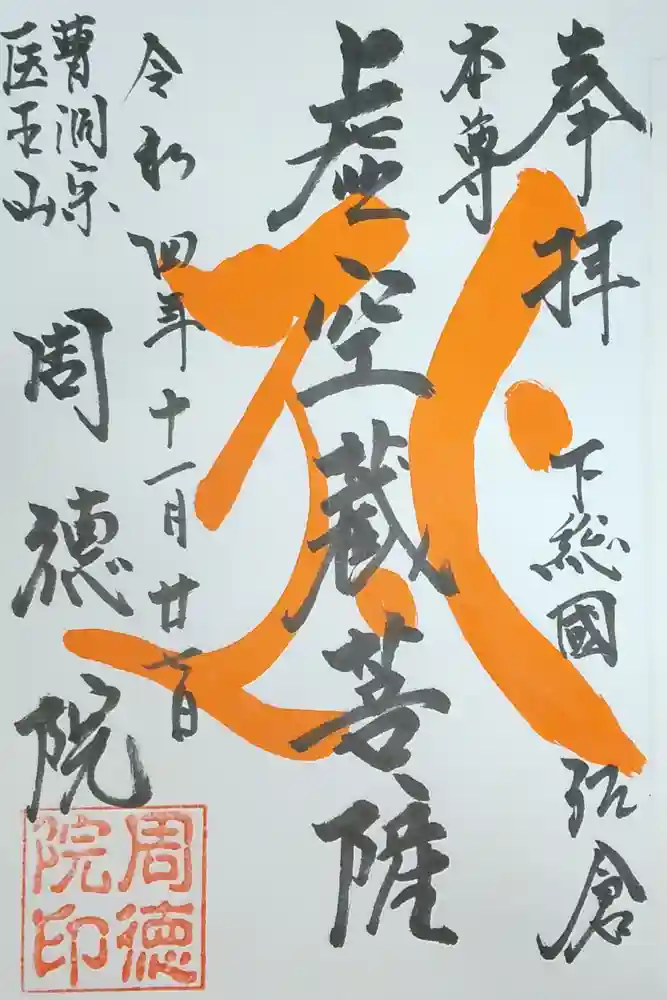 奉拝
下総國
弘倉
本尊
虚空蔵菩薩
令和四年十一月廿一日
曹洞宗
医王山
周徳院
周徳
院印